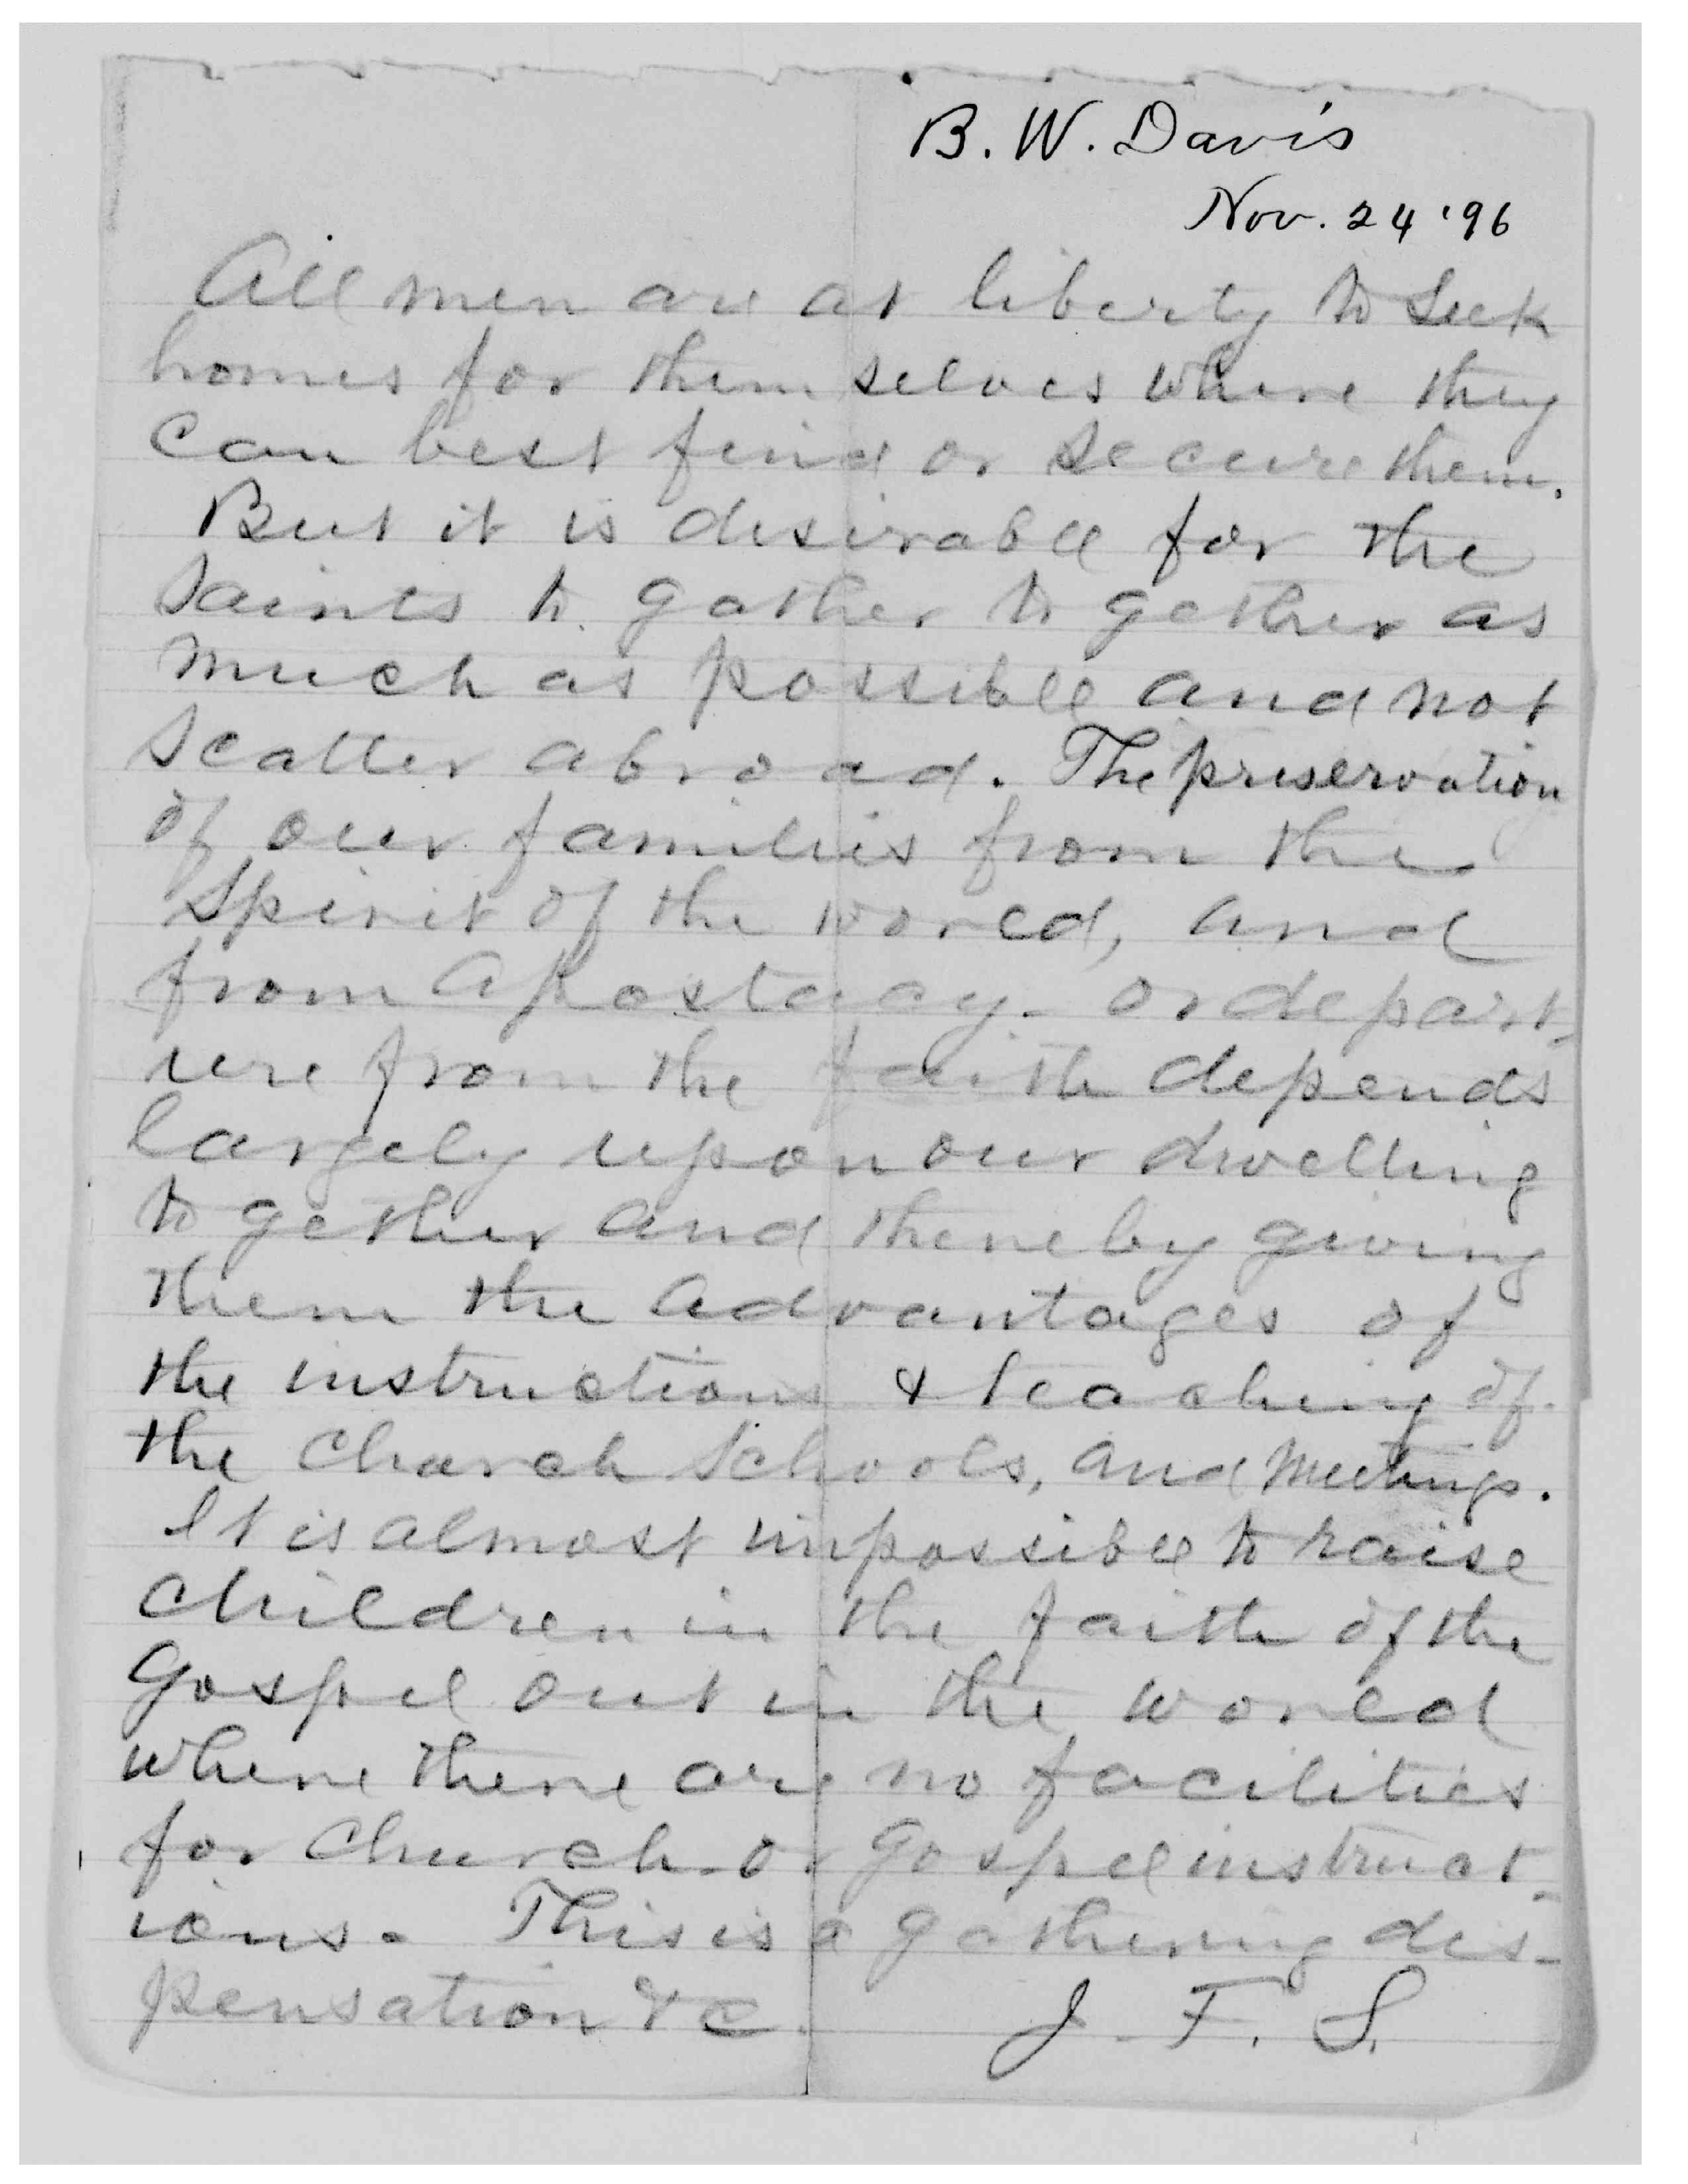 B. W. Davis
Nov. 24 '96
All men are at liberty to seek
homes for themselves where they
can best find or secure them.
But it is desirable for the
Saints to gather together as
much as possible and not
scatter abroad. The preservation
of our families from the
spirit of the world, and
from apostacy - or depart-
ure from the faith depends
largely upon our dwelling
together and thereby giving
them the advantages of
the instructions & teaching of
the Church Schools, and Meetings.
It is almost impossible to raise
children in the faith of the
Gospel out in the world
where there are no facilities
for Church or Gospel instruct-
ions. This is a gathering dis-
pensation &c.
J. F. S.